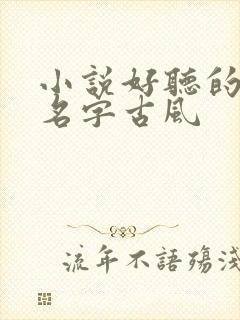 小説好聽的
名字古風
流年不語殤淺